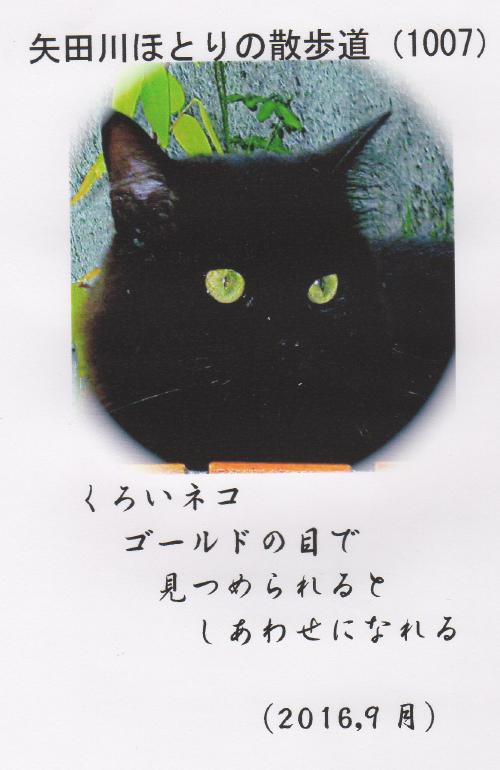 矢田川ほとりの散歩道（1007）
くろいネコ
ゴールドの目で
見つめられると
しあわせになれる
（2016,9 月）